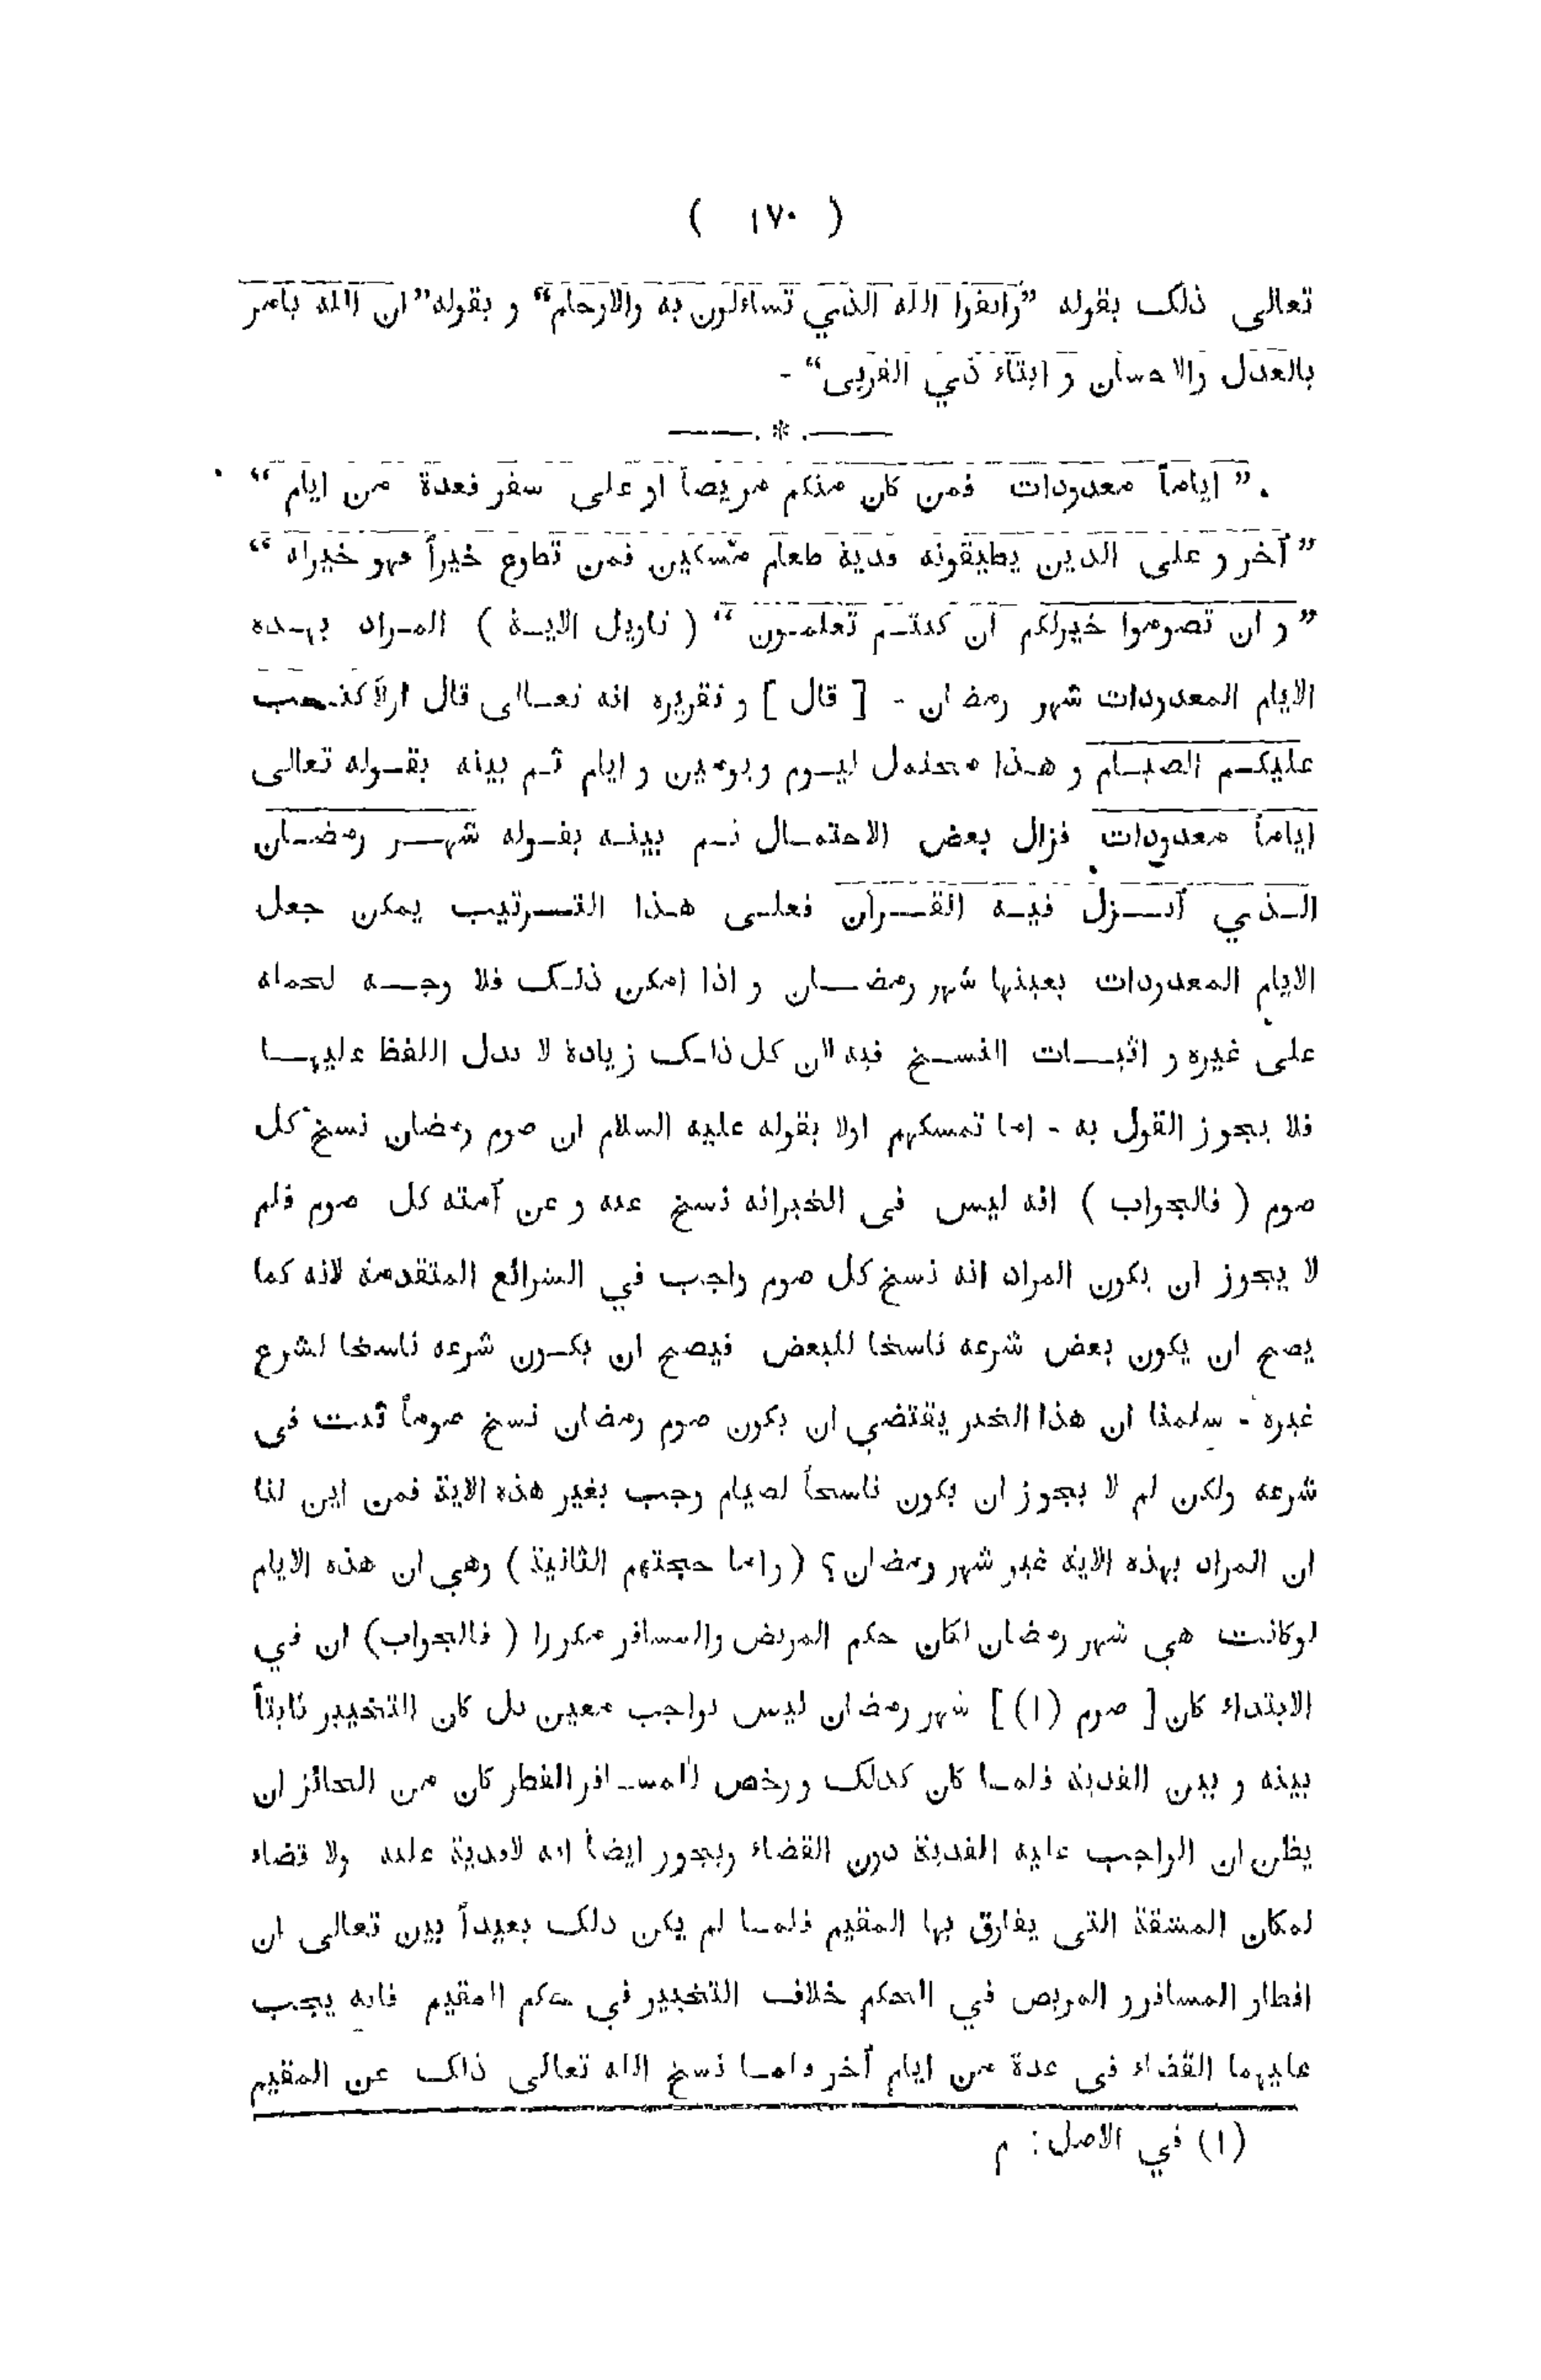 ( ١٧٠ )
تعالى ذلك بقوله ”واتقوا الله الذي تساءلون به والارحام“ و بقوله ”ان الله يامر
بالعدل والاحسان و ايتاء ذي القربى“ -
*
” اياماً معدودات فمن كان منكم مريضاً او على سفر فعدة من ايام “
” آخر و على الذين يطيقونه فدية طعام مسكين فمن تطوع خيراً فهو خيرله “
” و ان تصوموا خيرلكم ان كنتم تعلمون “ ( تاويل الاية ) المراد بهذه
الايام المعدودات شهر رمضان - [ قال ] و تقريره انه تعالى قال اولاً كتب
عليكم الصيام و هذا محتمل ليوم و يومين و ايام ثم بينه بقوله تعالى
اياماً معدودات فزال بعض الاحتمال ثم بينه بقوله شهر رمضان
الذي آنزل فيه القران فعلى هذا الترتيب يمكن جعل
الايام المعدودات بعينها شهر رمضان و اذا امكن ذلك فلا وجه لحمله
على غيره و اثبات النسخ فيه لان كل ذلك زيادة لا يدل اللفظ عليها
فلا يجوز القول به - اما تمسكهم اولا بقوله عليه السلام ان صوم رمضان نسخ كل
صوم ( فالجواب ) انه ليس فى الخبرانه نسخ عنه و عن آمته كل صوم فلم
لا يجوز ان يكون المراد انه نسخ كل صوم واجب في الشرائع المتقدمة لانه كما
يصح ان يكون بعض شرعه ناسخا للبعض فيصح ان يكون شرعه ناسخا لشرع
غيره - سلمنا ان هذا الخبر يقتضي ان يكون صوم رمضان نسخ صوماً ثبت فى
شرعه ولكن لم لا يجوز ان يكون ناسخاً لصيام وجب بغير هذه الاية فمن اين لنا
ان المراد بهذه الاية غير شهر رمضان ؟ ( واما حجتهم الثانية ) وهي ان هذه الايام
لوكانت هي شهر رمضان لكان حكم المريض والمسافر مكررا ( فالجواب ) ان في
الابتداء كان [ صوم (١) ] شهر رمضان ليس بواجب معين بل كان التخيير ثابتاً
بينه و بين الفدية فلما كان كذلك و رخص للمسافر الفطر كان من الجائز ان
يظن ان الواجب عليه الفدية دون القضاء ويجوز ايضاً انه لافدية عليه ولا قضاء
لمكان المشقة التى يفارق بها المقيم فلما لم يكن ذلك بعيداً بين تعالى ان
افطار المسافرو المريض في الحكم خلاف التخيير في حكم المقيم فانه يجب
عليهما القضاء فى عدة من ايام آخر ولما نسخ الله تعالى ذلك عن المقيم
(١) في الاصل : م